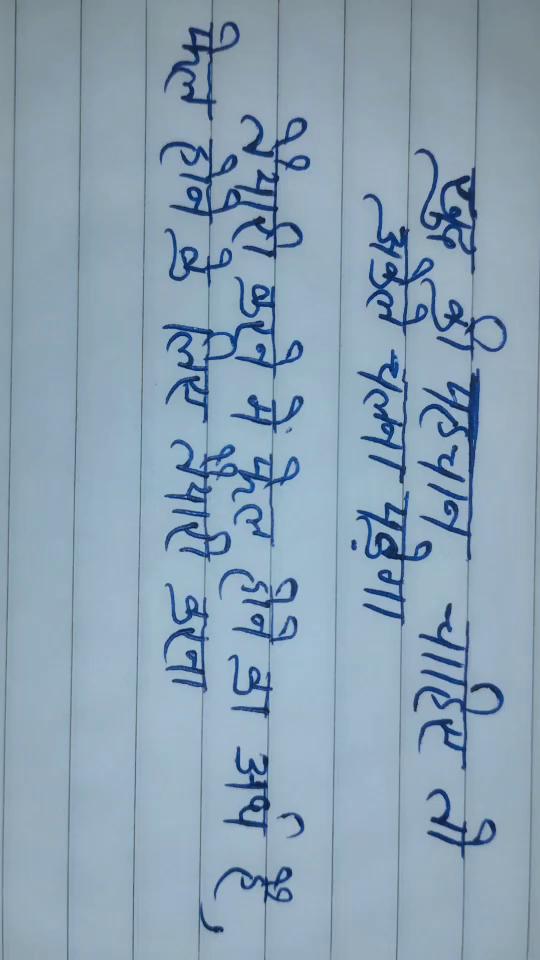 खुद की पहचान चाहिए तो
अकेले चलना पड़ेगा
तैयारी करने मे फेल होने का अर्थ है,
फेल होने के लिए तैयारी करना